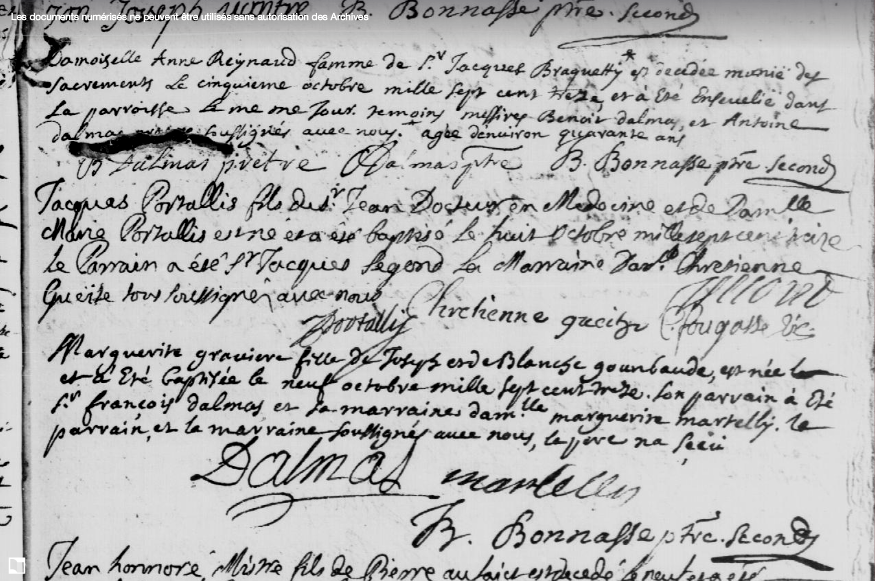 Les documents numérisés ne peuvent être utilisés sans autorisation des Archives
Joseph B. Bonnasse ptre. second
Damoiselle Anne Reynaud famme de Sr Jacques Braguetty * est decedée munie des
sacrements Le cinquieme octobre mille sept cent treze, et a Eté Ensevelie dans
La parroisse Le me me Jour. temoins messires Benoit dalmas, et Antoine
dalmas soussignés avec nous. agée denuiron quarante ans
B Dalmas pretre Dalmas ptre B. Bonnasse ptre second
Jacques Portallis fils du Sr Jean Docteur en Medecine et de Damlle
Marie Portallis est né et a eté baptisé le huit octobre mille sept cent treize
le Parrain a été Sr Jacques Segond La Marraine Damlle Chretienne
Gueite tous soussigné avec nous
Portally Chretienne gueite Fougasse Vic.
Marguerite graviere fille de Joseph et de Blanche gounbaude, est née le
et a Eté baptisée le neuf octobre mille sept cent treze. son parrain à Eté
Sr françois dalmas, et La marraine damlle marguerite martelly. le
parrain, et la marraine soussignés avec nous, le pere na sceu
Dalmas martelly
B. Bonnasse ptre. second
Jean honnoré Mistre fils de Pierre au laict est decedé le neuf